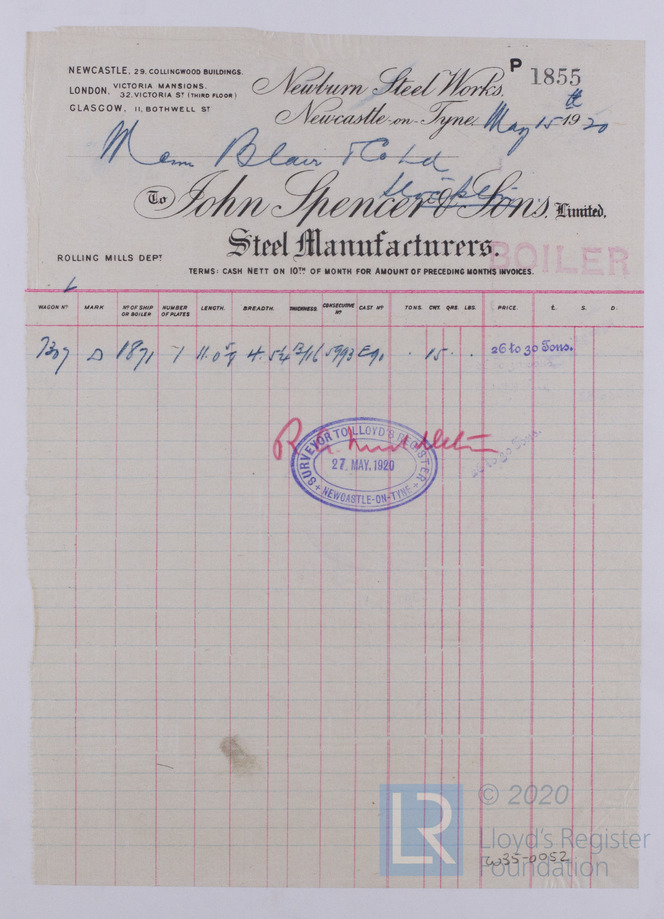 P 1855
NEWCASTLE, 29, COLLINGWOOD BUILDINGS.
LONDON, VICTORIA MANSIONS, 32, VICTORIA ST (THIRD FLOOR)
GLASGOW, 11, BOTHWELL ST
Newburn Steel Works,
Newcastle-on-Tyne, May 15th 1920
Messrs Blair & Co Ld
Stockton
To John Spencer & Sons, Limited,
Steel Manufacturers.
BOILER
ROLLING MILLS DEPT
TERMS: CASH NETT ON 10TH OF MONTH FOR AMOUNT OF PRECEDING MONTHS INVOICES.
WAGON No MARK No OF SHIP OR BOILER NUMBER OF PLATES LENGTH. BREADTH. THICKNESS. CONSECUTIVE No CAST No TONS. CWT. QRS. LBS. PRICE. £. S. D.
1871 1 15 26 to 30 Tons.
26 to 30 Tons.
SURVEYOR TO LLOYD'S REGISTER
27. MAY. 1920
NEWCASTLE-ON-TYNE
LR
© 2020
Lloyd's Register
Foundation
W35-0052